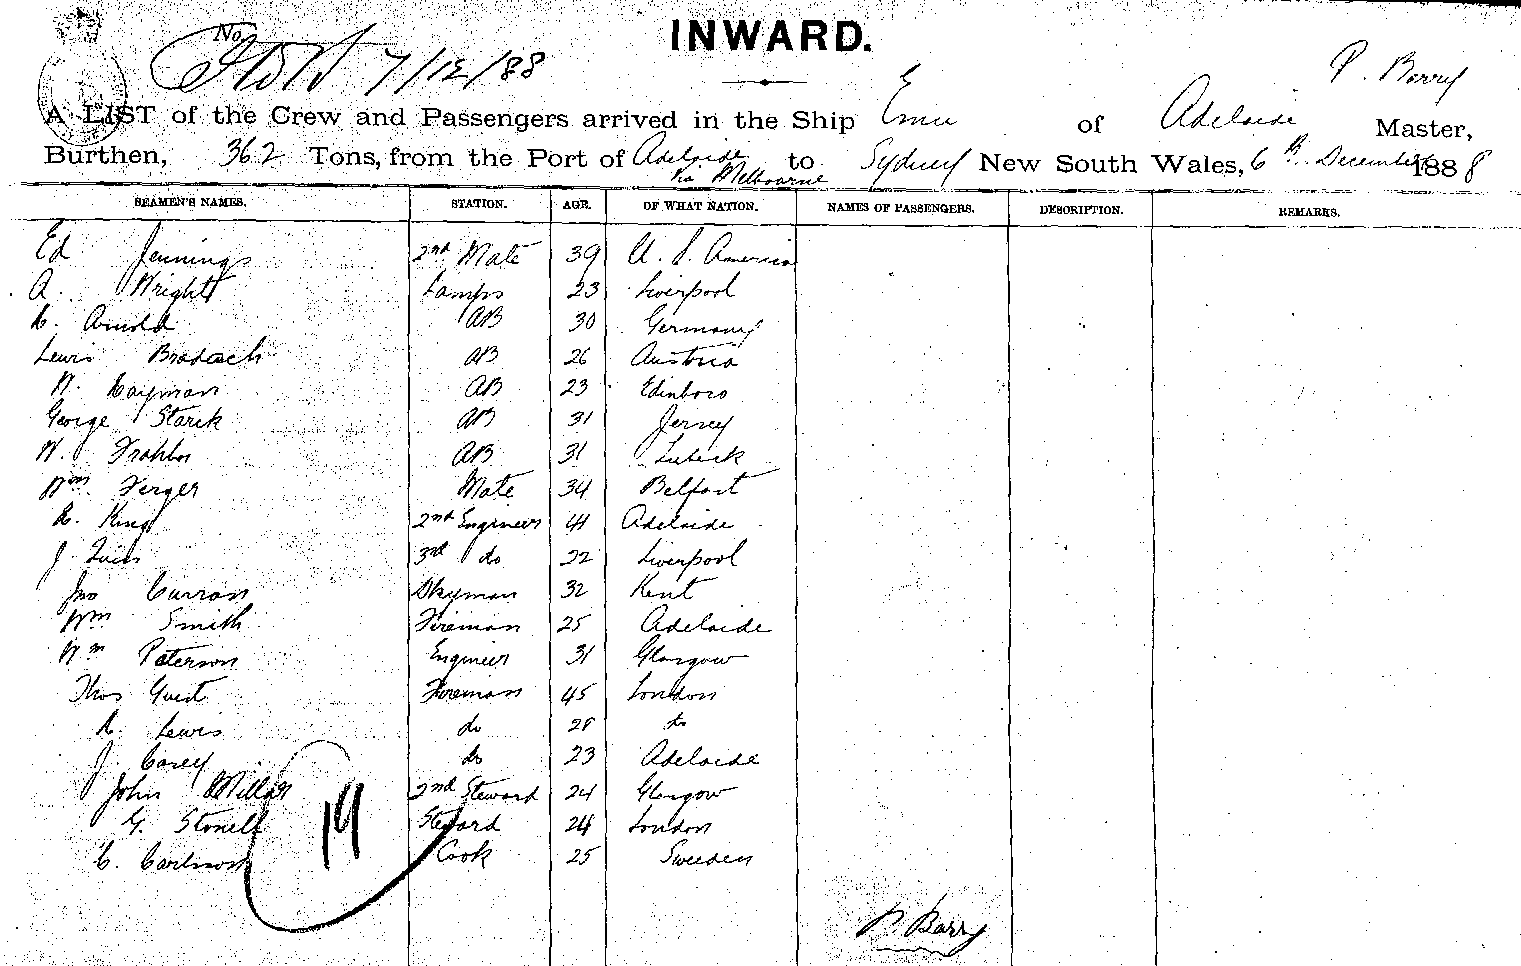 No.
7/12/88
INWARD.
P. Barry
A LIST of the Crew and Passengers arrived in the Ship Emu of Adelaide Master,
Burthen, 362 Tons, from the Port of Adelaide to Sydney New South Wales, 6th December 1888
via Melbourne
SEAMEN'S NAMES. STATION. AGE. OF WHAT NATION. NAMES OF PASSENGERS. DESCRIPTION. REMARKS.
Ed Jennings 2nd Mate 39 U. S. America
A. Wright Lamps 23 Liverpool
Arnold AB 30 Germany
Lewis AB 26 Austria
AB 23 Edinboro
George Starck AB 31 Jersey
W. AB 31 Lubeck
Wm. Ferger Mate 34 Belfast
R. King 2nd Engineer 41 Adelaide
J. 3rd do 22 Liverpool
Jno Curran Dkyman 32 Kent
Wm Smith Fireman 25 Adelaide
Wm Paterson Engineer 31 Glasgow
Thos Guest Fireman 45 London
R. Lewis do do
J. Carey do 23 Adelaide
John Millar 2nd Steward 24 Glasgow
G. Stonell Steward 24 London
C. Cook 25 Sweden
19
P. Barry